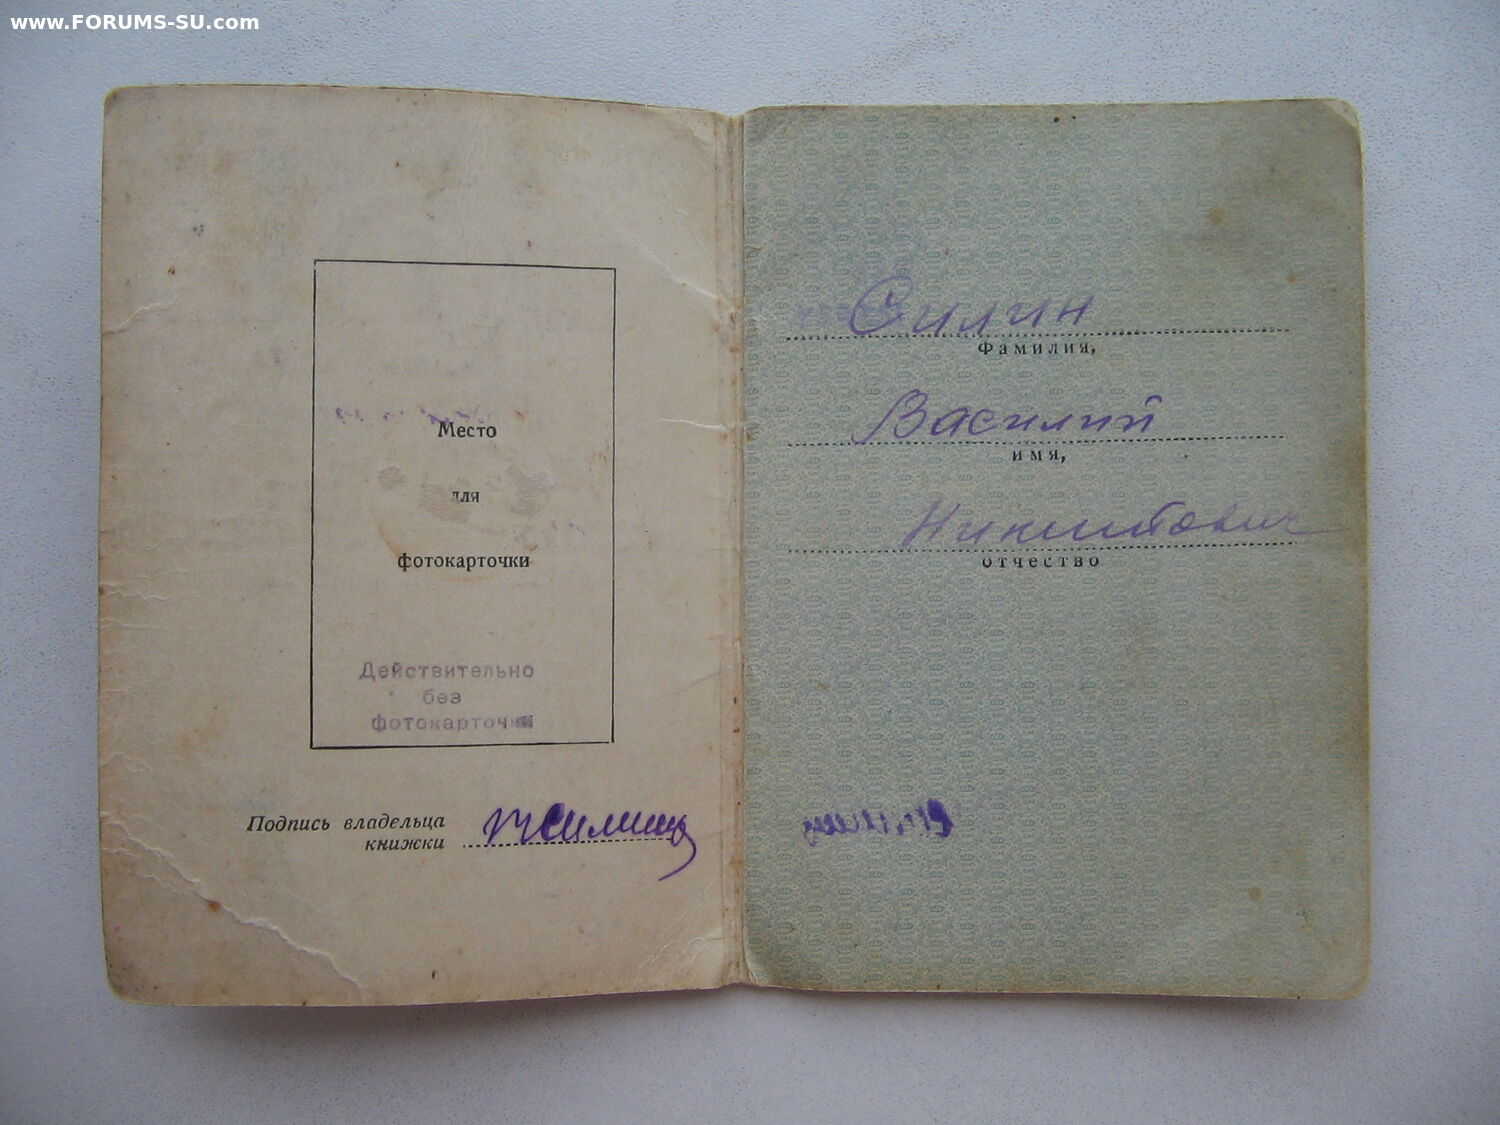 www.FORUMS-SU.com
Место
для
фотокарточки
Действительно
без
фотокарточки
Подпись владельца
книжки
Силин
Фамилия,
Василий
имя,
Никитович
отчество